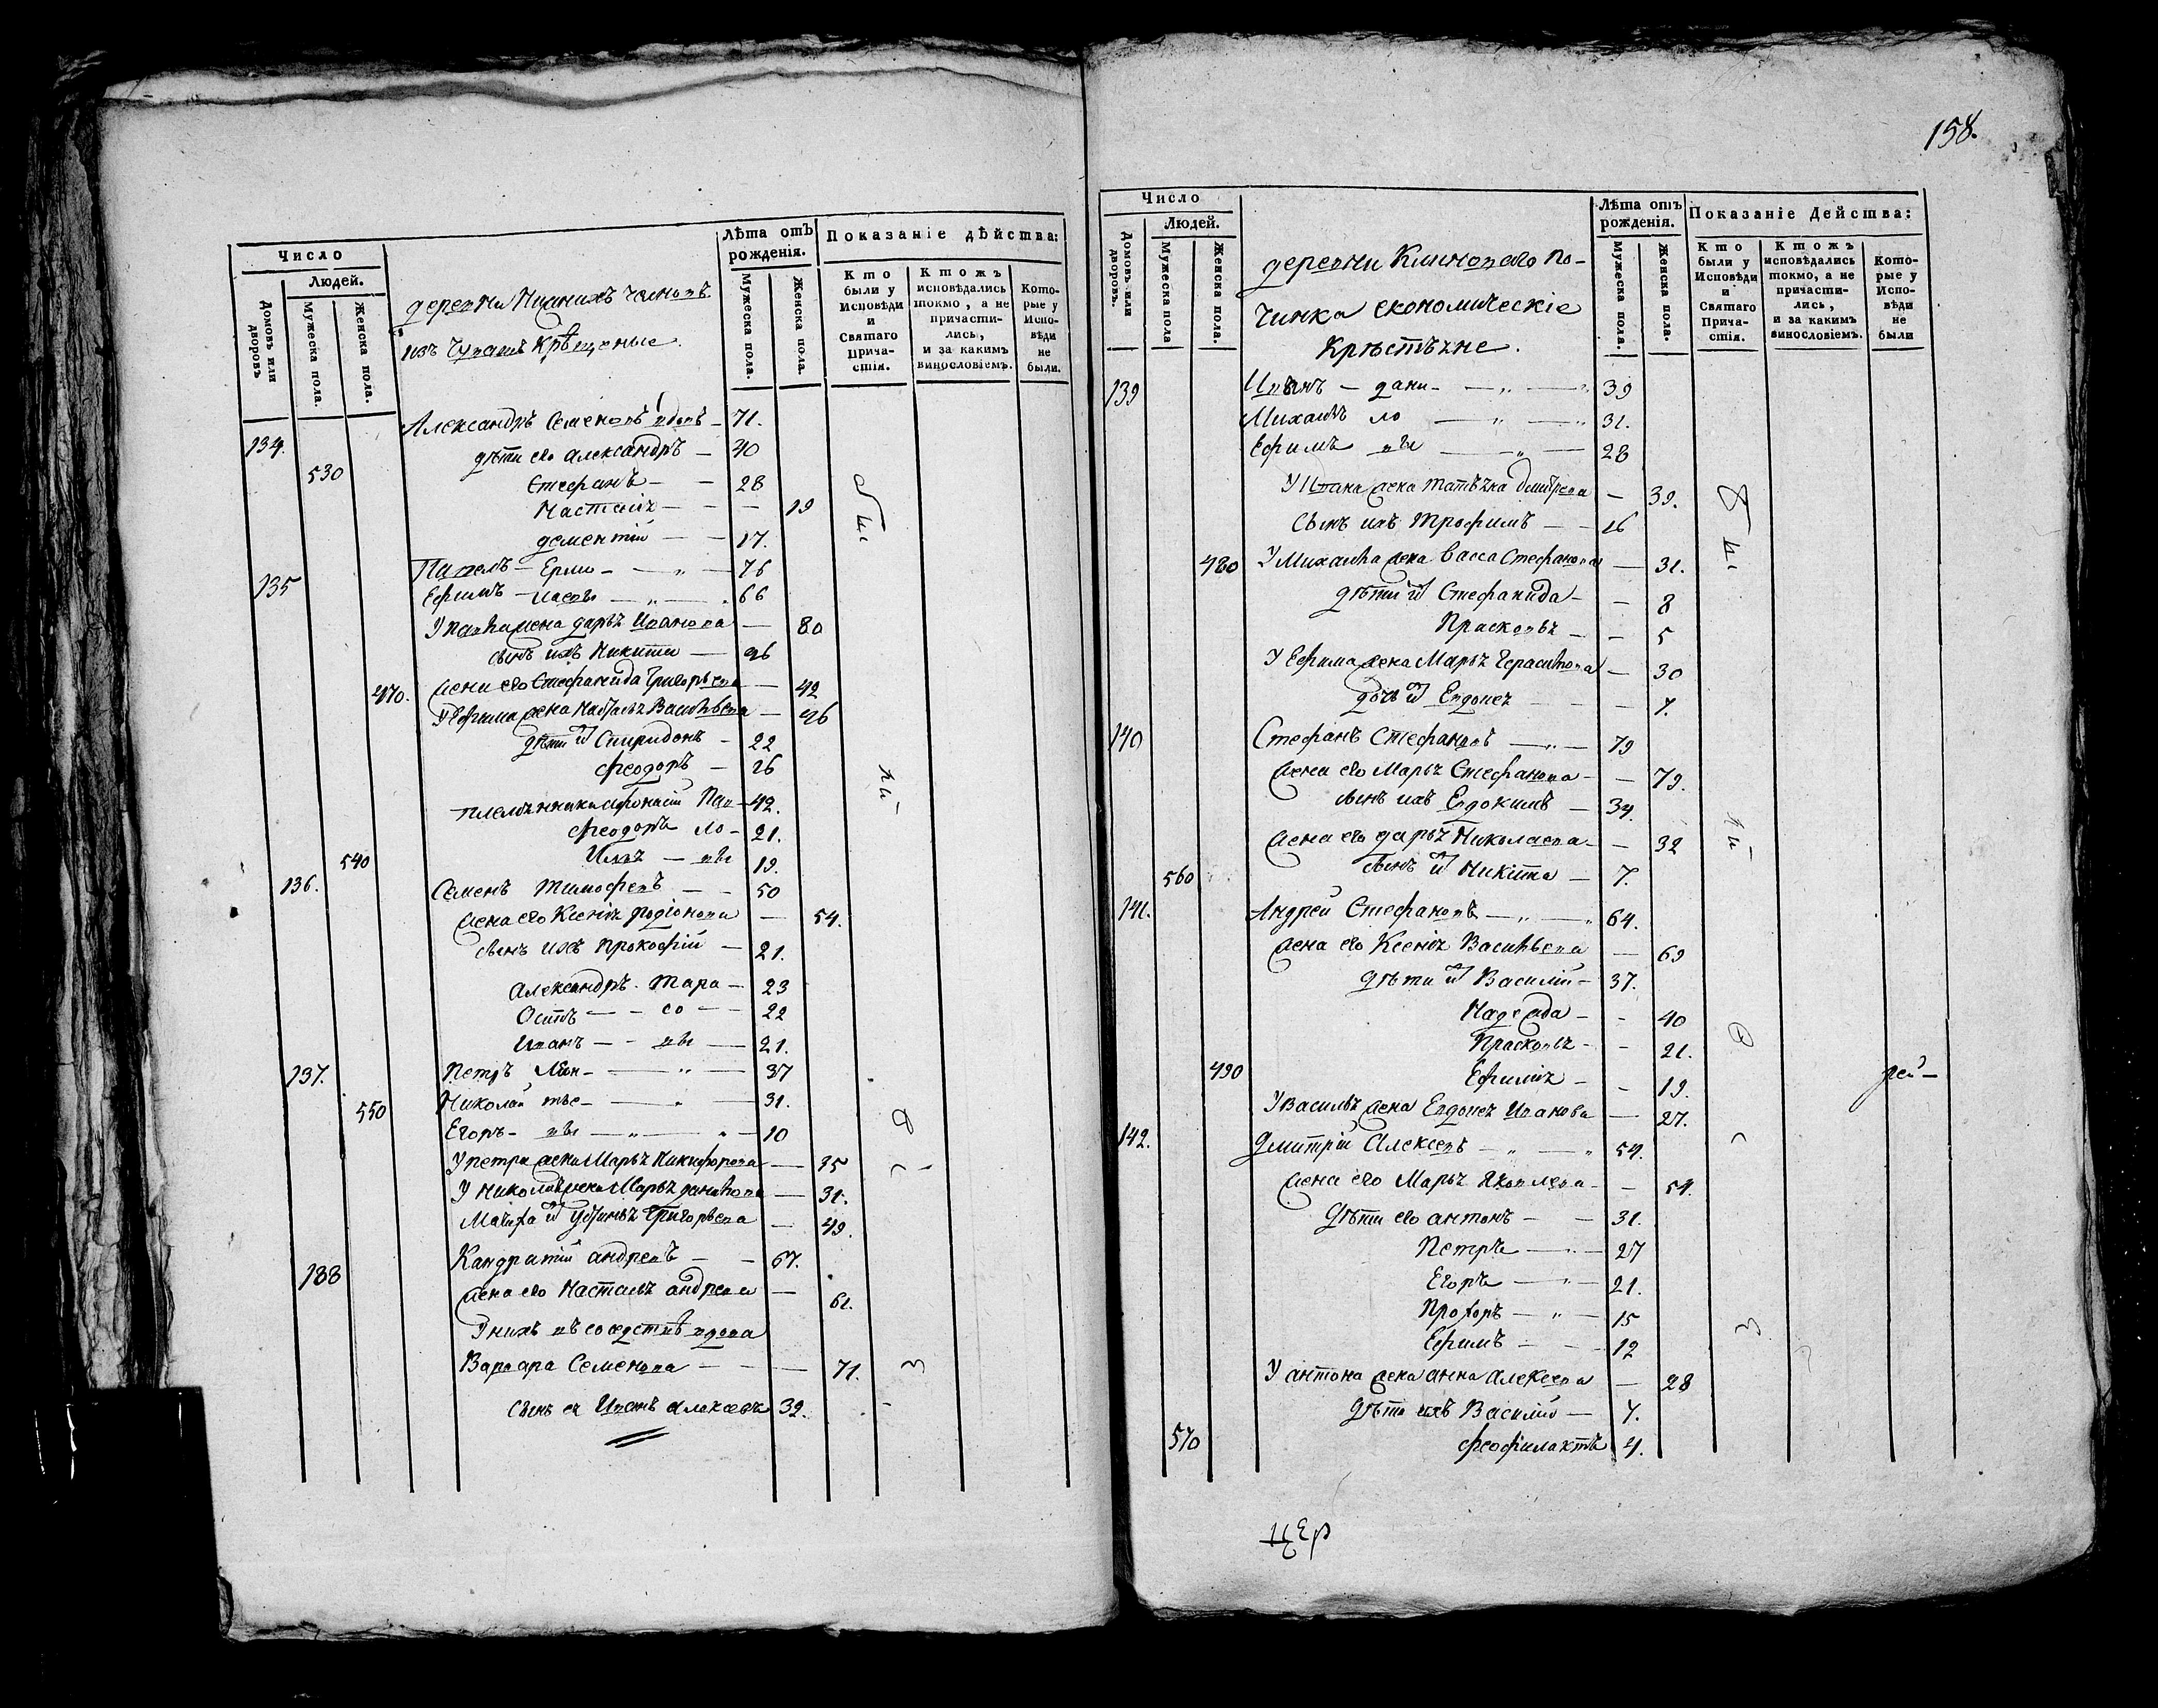 158.
Число
Людей.
Домовъ или дворовъ
Мужеска пола.
Женска пола.
деревни Нижнихъ Челновъ
изъ Чувашъ Крѣщеные.
Лѣта отъ рожденія.
Мужеска пола.
Женска пола.
Показаніе дѣйства:
Кто были у Исповѣди и Святаго Прича-стія.
Ктожъ исповѣдались токмо, а не причасти-лись, и за какимъ винословіемъ.
Кото-рые у Испо-вѣди не были.
134. Александръ Семеновъ вдовъ 71.
дѣти его Александръ — 40
530 Стефанъ — 28
Настасія — 19
Дементий — 17.
135 Павелъ — Ермо — 76
Ефимъ — лаевы — 66
У Павла жена Дарья Иванова — 80
сынъ ихъ Никита — 46
470. жена его Стефанида Григорьева — 42
У Ефима жена Наталья Васильева — 46
дѣти их Спиридонъ — 22
Феодоръ — 26
племянники Афонасий Пав — 42.
Феодоръ ло — 21.
540 Илья — вы 19.
136. Семенъ Тимофеевъ — 50
жена его Ксения Родионова — 54.
сынъ ихъ Прокофий — 21.
Александръ Тара — 23
Осипъ — со — 22
Иванъ — вы — 21.
137. Петръ Леон — 37
550 Николай тье — 31.
Егоръ — вы — 10
У Петра жена Марья Никифорова — 35
У Николая жена Марья Данилова — 31.
Мачиха их Устинья Григорьева — 49.
138 Кандратий Андреевъ — 67.
жена его Настасья Андреева — 61.
У нихъ въ соседствѣ вдова
Варвара Семенова — 71.
сынъ ея Иванъ Алексеевъ 32.
Число
Людей.
Домовъ или дворовъ.
Мужеска пола
Женска пола.
деревни Клиноваго По-
чинка економическіе
Крѣстьяне.
Лѣта отъ рожденія.
Мужеска пола.
Женска пола.
Показаніе Дейсшва:
Кто были у Исповѣди и Святаго Прича-стія.
Ктожъ исповѣдались токмо, а не причасти-лись, и за какимъ винословіемъ.
Кото-рые у Испо-вѣди не были
139 Иванъ — Дани — 39
Михаилъ ло — 31.
Ефимъ вы — 28
У Ивана жена Татьяна Дмитрева — 39.
Сынъ ихъ Трофимъ — 16
480 У Михаила жена Васса Стефанова — 31.
дѣти их Стефанида — 8
Прасковья — 5
У Ефима жена Марья Герасимова — 30
дочь их Евдокея — 7.
140 Стефанъ Стефановъ — 79
жена его Марья Стефанова — 79.
сынъ ихъ Евдокимъ — 34.
жена его Дарья Николаева — 32
560 сынъ их Никита — 7.
141. Андрей Стефановъ — 64.
жена его Ксения Васильева — 69
дѣти их Василий — 37.
Надежда — 40
Прасковья — 21.
490 Ефимия — 19.
У Василья жена Евдокея Иванова — 27.
142. Дмитрий Алексеевъ — 54.
жена его Марья Яковлева — 54.
Дѣти его Антонъ — 31.
Петръ — 27
Егоръ — 21.
Прохоръ — 15
Ефимъ — 12
У Антона жена Анна Алексеева — 28
Дѣти ихъ Василий — 7.
570 Феофилактъ 4.
рей —
цер